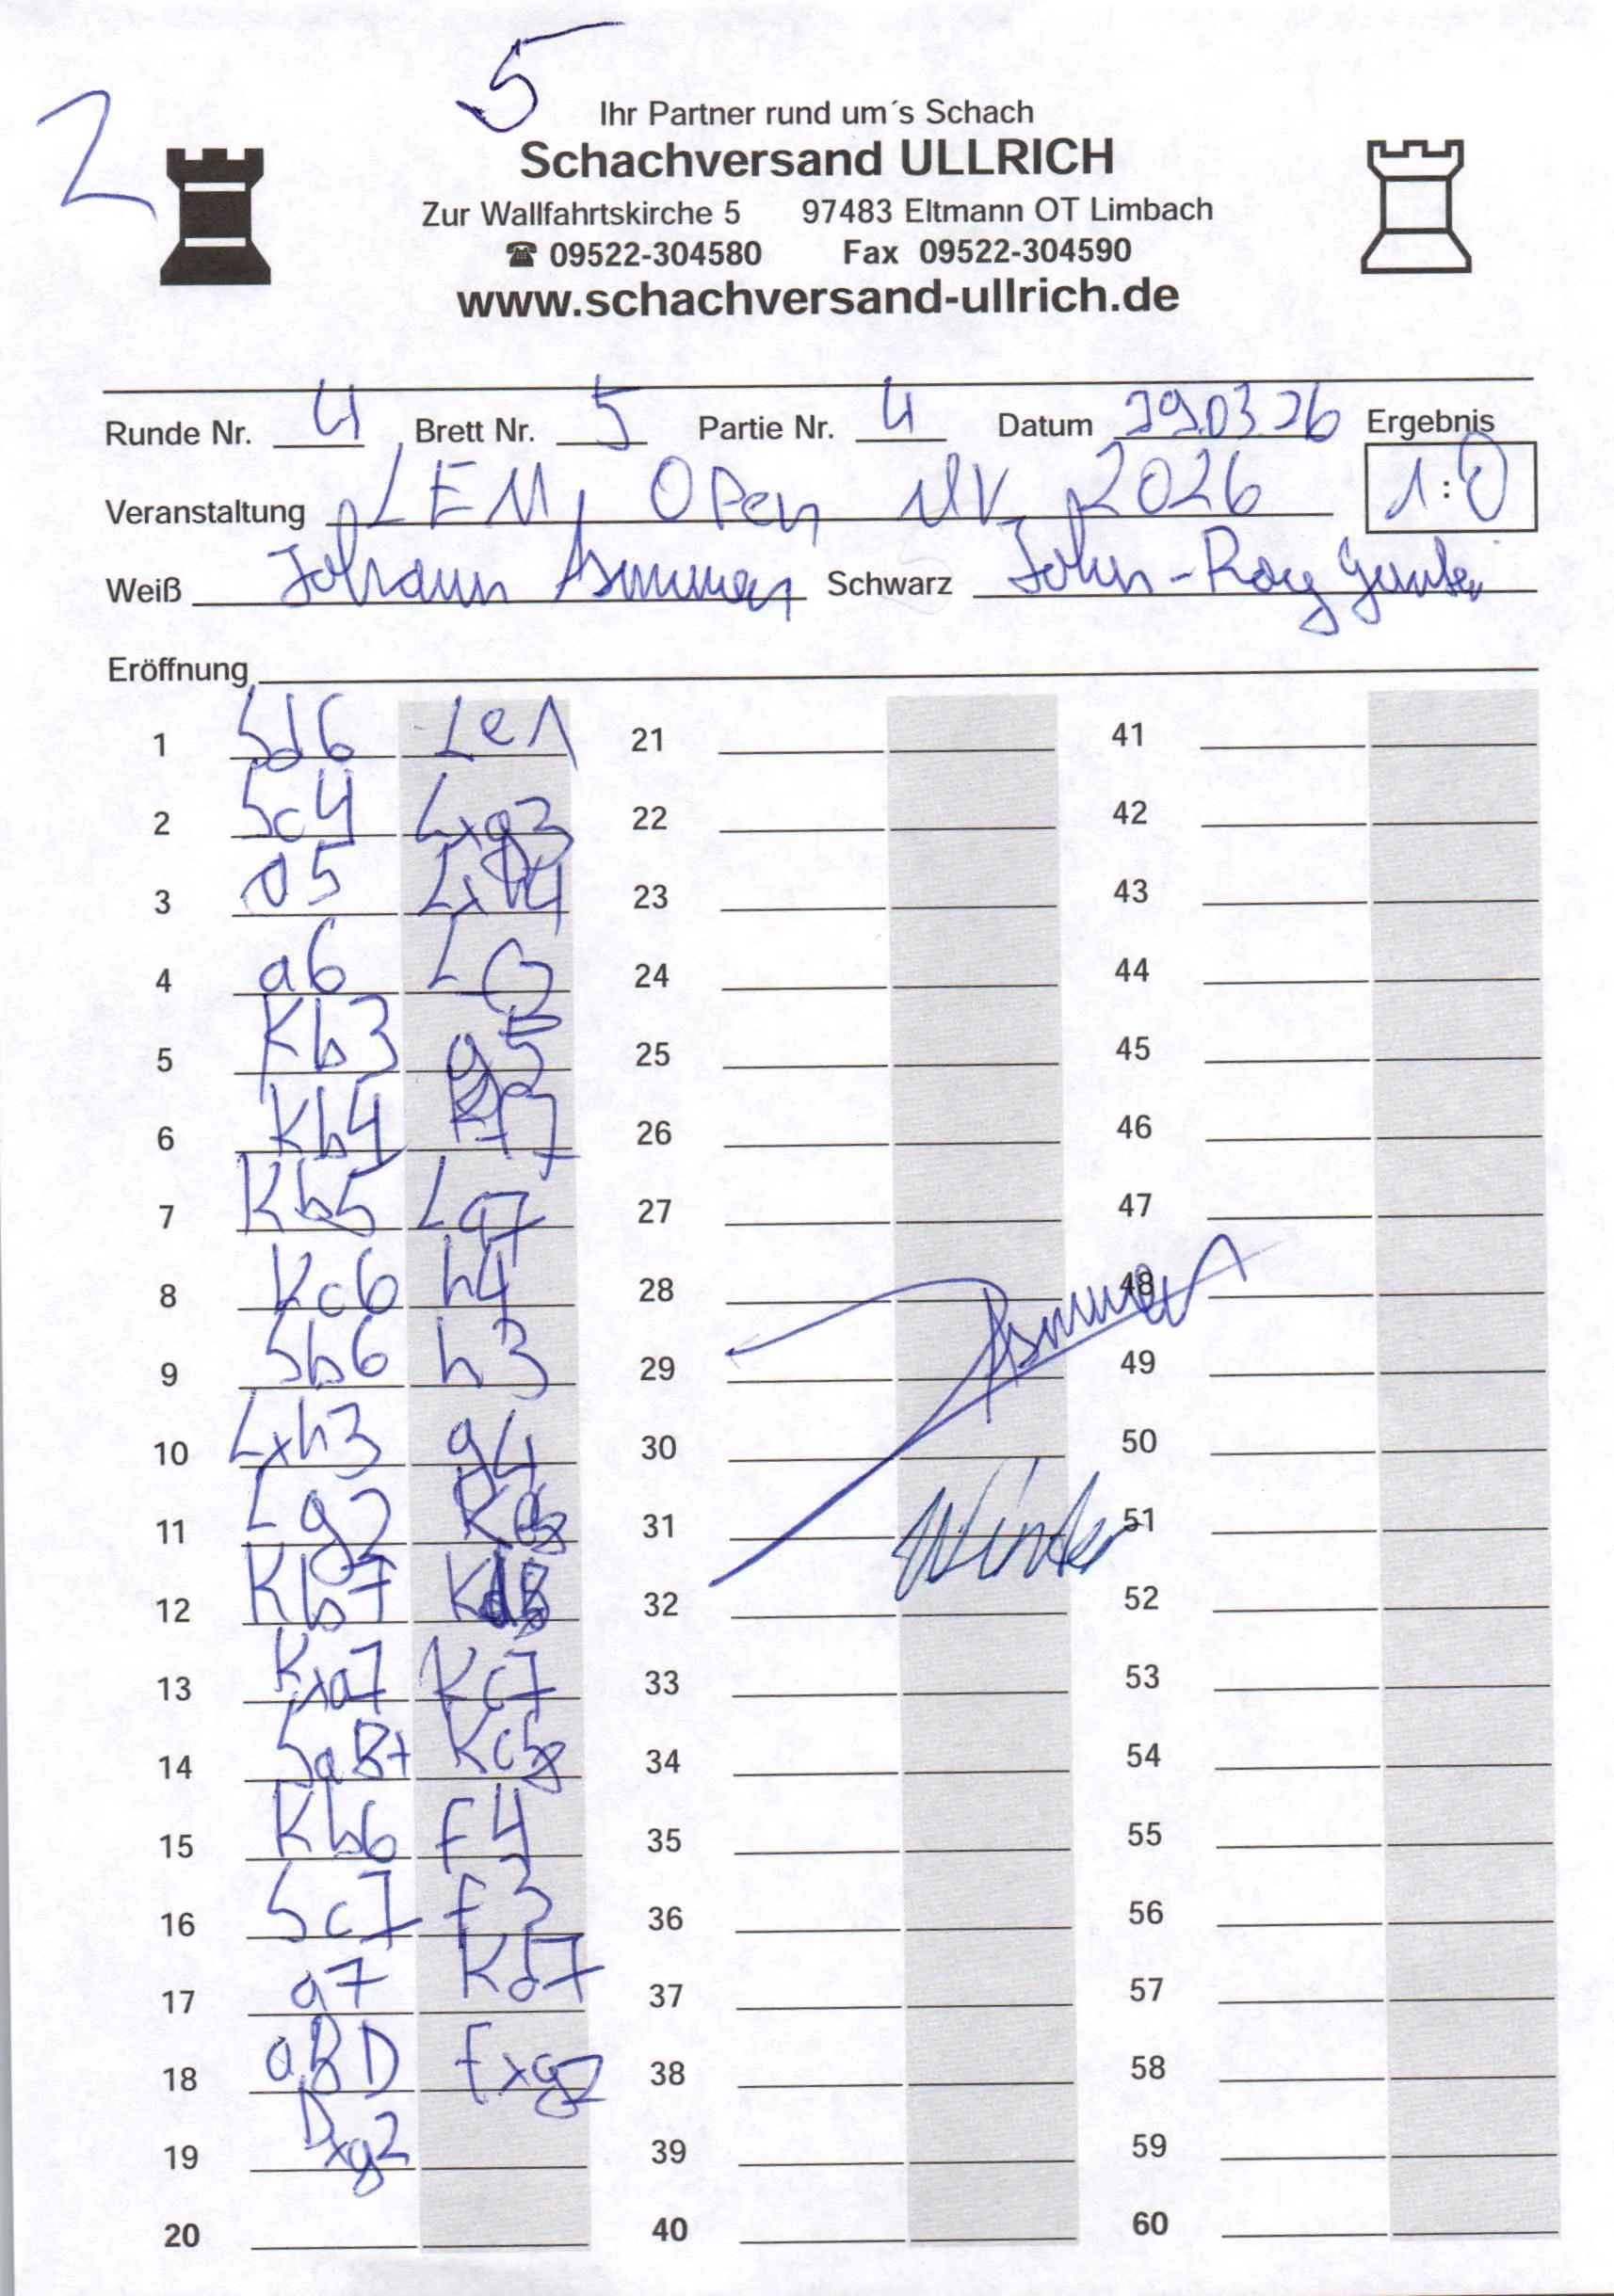 5
2
Ihr Partner rund um´s Schach
Schachversand ULLRICH
Zur Wallfahrtskirche 5 97483 Eltmann OT Limbach
☎ 09522-304580 Fax 09522-304590
www.schachversand-ullrich.de
Runde Nr. 4 Brett Nr. 5 Partie Nr. 4 Datum 29.03.26 Ergebnis
Veranstaltung LEM, Open MV, 2026 1:0
Weiß Johann Schwarz John-Roy
Eröffnung
1 Sd6 Le1 21 41
2 Sc4 Lxg3 22 42
3 a5 Lxh4 23 43
4 a6 L 24 44
5 Kb3 g5 25 45
6 Kb4 Kf7 26 46
7 Kb5 La7 27 47
8 Kc6 h4 28 48
9 Sb6 h3 29 49
10 Lxh3 g4 30 50
11 Lg2 31 51
12 Kb7 Kd8 32 52
13 Kxa7 Kc7 33 53
14 Sa8+ Kc8 34 54
15 Kb6 f4 35 55
16 Sc7 f3 36 56
17 a7 Kd7 37 57
18 a8D fxg2 38 58
19 Dxg2 39 59
20 40 60